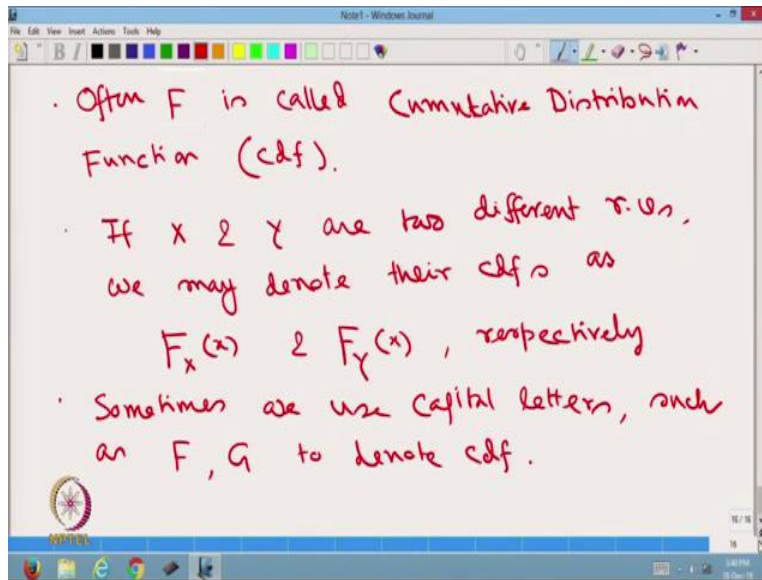 Note1 - Windows Journal
File Edit View Insert Actions Tools Help
. Often F is called Cumulative Distribution
Function (cdf).
. If X & Y are two different r.vs,
we may denote their cdfs as
F_X(x) & F_Y(x), respectively
. Sometimes we use capital letters, such
as F, G to denote cdf.
NPTEL
16/16
16
3:40 PM